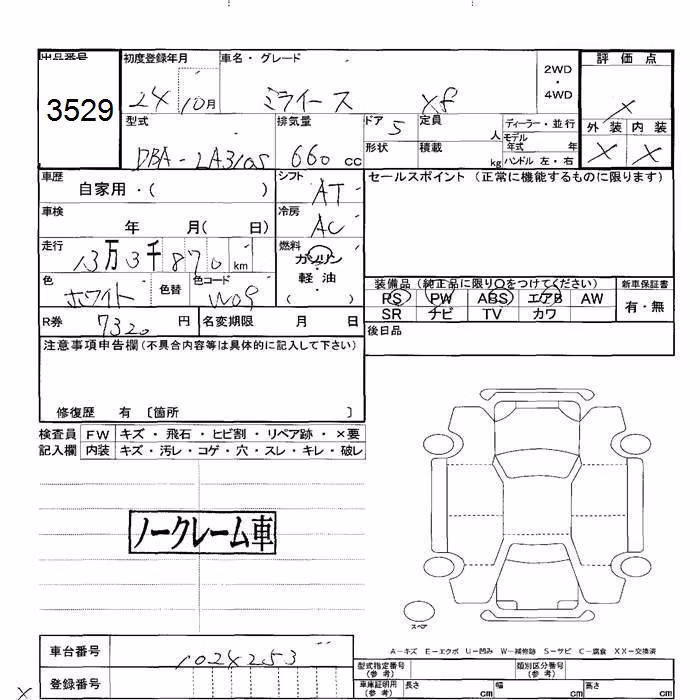 出品番号 初度登録年月 車名・グレード 2WD・4WD 評価点
3529 24 10月 ミライース Xf X
型式 排気量 ドア 5 定員 人 ディーラー・並行 外装 内装
DBA-LA310S 660 cc 形状 積載 kg モデル年式 年 X X
ハンドル 左・右
車歴 自家用・( ) シフト AT セールスポイント (正常に機能するものに限ります)
車検 年 月( 日) 冷房 AC
走行 13万3千870km 燃料 ガソリン・軽油 ( )
色 ホワイト 色替 色コード W09 装備品 (純正品に限り○をつけてください) 新車保証書
PS PW ABS エアB AW 有・無
SR ナビ TV カワ
R券 7320 円 名変期限 月 日 後日品
注意事項申告欄(不具合内容等は具体的に記入して下さい)
修復歴 有 〔箇所 〕
検査員 FW キズ・飛石・ヒビ割・リペア跡・×要
記入欄 内装 キズ・汚レ・コゲ・穴・スレ・キレ・破レ
ノークレーム車
スペア
A-キズ E-エクボ U-凹み W-補修跡 S-サビ C-腐食 XX-交換済
車台番号 1024253 型式指定番号(参考) 類別区分番号(参考)
登録番号 車庫証明用(参考) 長さ cm 幅 cm 高さ cm
X